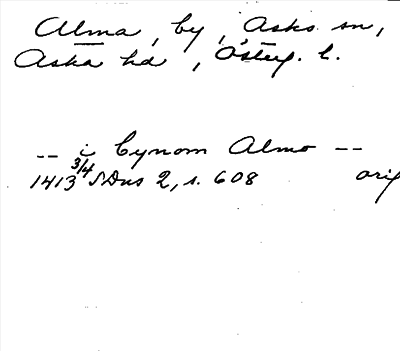 Alma, by, Asks sn,
Aska hd, Österg. l.
-- i bynom Almo --
1413 3/4 SDns 2, s. 608 orig